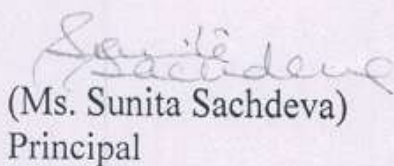 Sunita
Sachdeva
(Ms. Sunita Sachdeva)
Principal